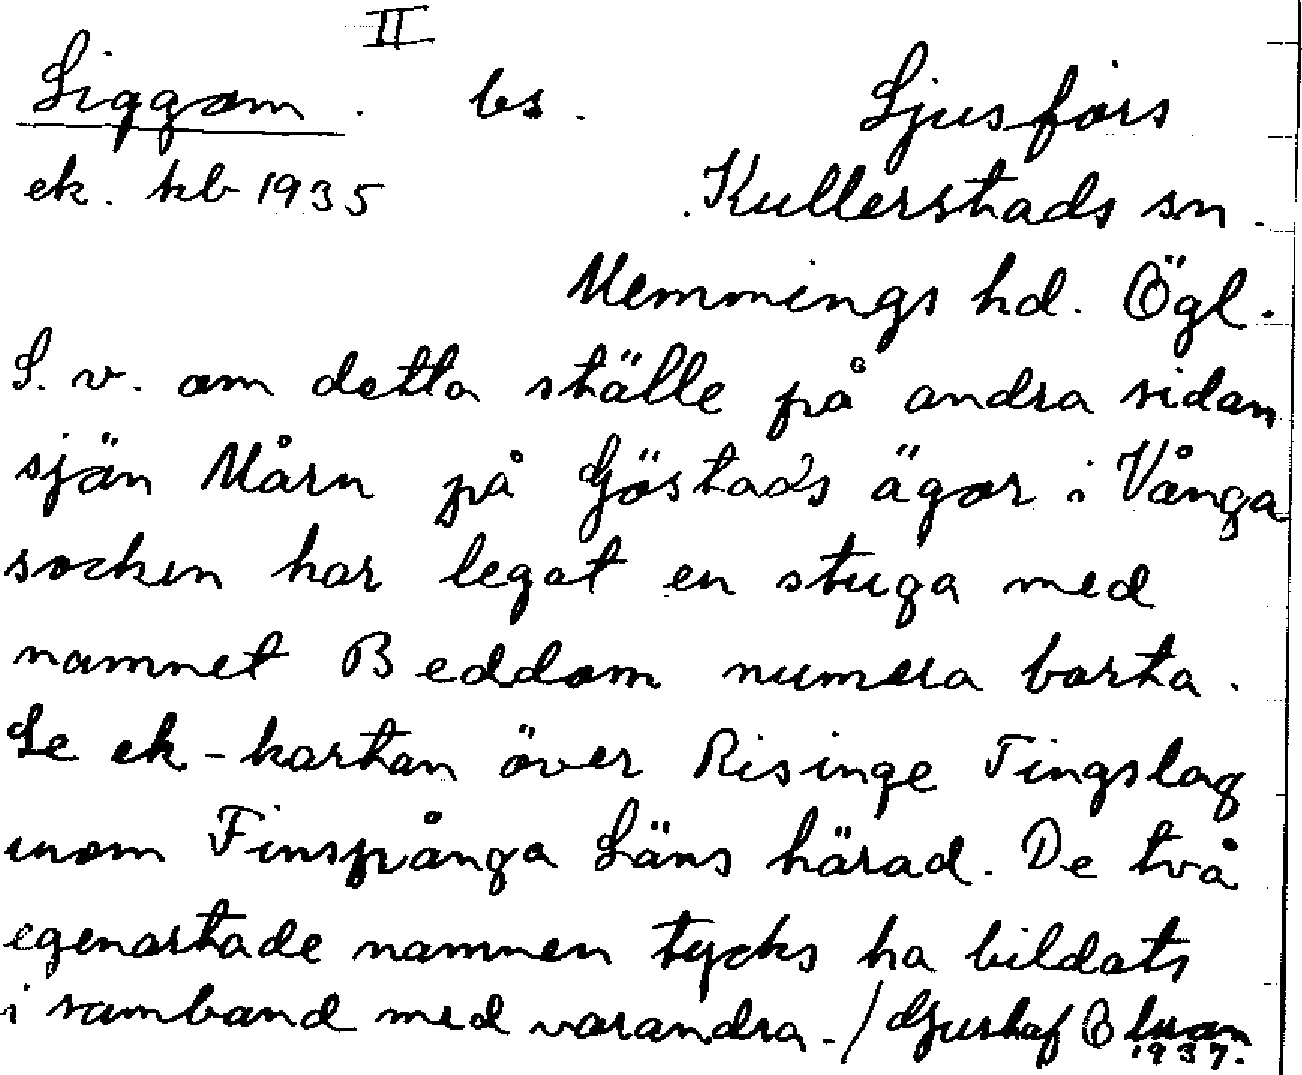 II
Liggom. bs. Ljusfors
ek. kb 1935 Kullerstads sn.
Memmings hd. Ögl.
S. v. om detta ställe på andra sidan
sjön Mårn på Göstads ägor i Vånga
socken har legat en stuga med
namnet Beddom numera borta.
Se ek-kartan över Risinge Tingslag
inom Finspånga Läns härad. De två
egenartade namnen tycks ha bildats
i samband med varandra. / Gustaf
1937.